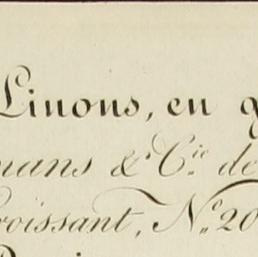 Linons, en g
mans & Cie. de
roissant, No. 20